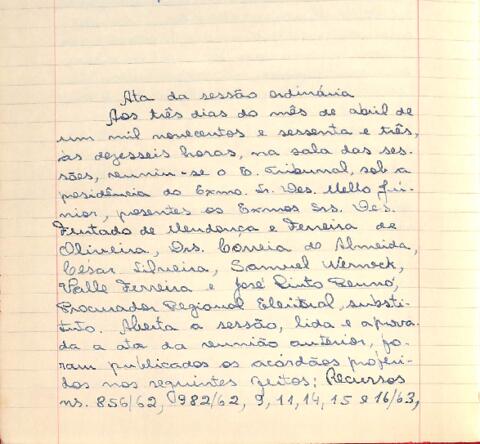 Ata da sessão ordinária
Aos três dias do mês de abril de
um mil novecentos e sessenta e três,
às dezesseis horas, na sala das ses-
sões, reuniu-se o E. Tribunal, sob a
presidência do Exmo. Sr. Des. Mello Jú-
nior, presentes os Exmos Srs. Des.
Furtado de Mendonça e Ferreira de
Oliveira, Drs. Correia de Almeida,
César Silveira, Samuel Werneck,
Valle Ferreira e José Pinto Renó,
Procurador Regional Eleitoral, substi-
tuto. Aberta a sessão, lida e aprova-
da a ata da reunião anterior, fo-
ram publicados os acórdãos proferi-
dos nos seguintes feitos: Recursos
ns. 856/62, 982/62, 9, 11, 14, 15 e 16/63,